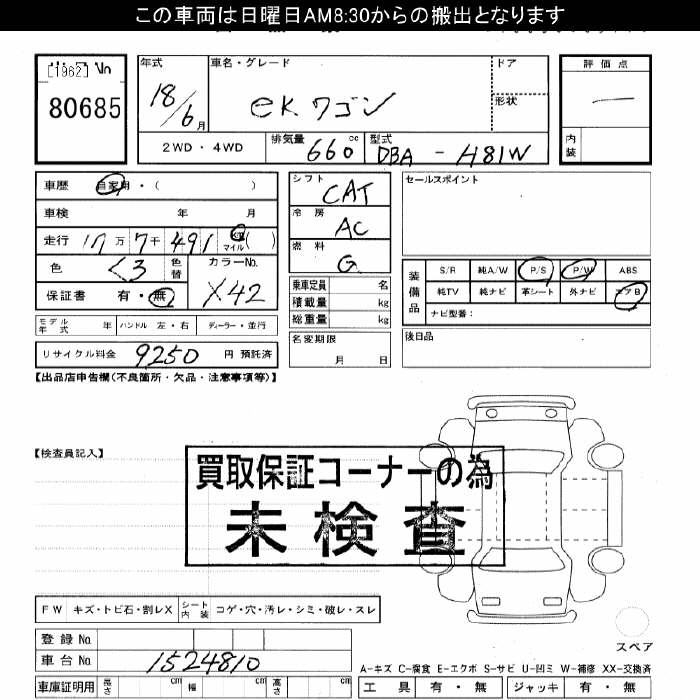 この車両は日曜日AM8:30からの搬出となります
[1962] No
80685
年式 18/6月
車名・グレード ekワゴン
ドア
形状
評価点 —
内装
2WD・4WD
排気量 660cc
型式 DBA - H81W
車歴 自家用・( )
車検 年 月
走行 17万7千491 km マイル ( )
色 クロ 色替 カラーNo. X42
保証書 有・無
モデル年式 年 ハンドル 左・右 ディーラー・並行
リサイクル料金 9250 円 預託済
シフト CAT
冷房 AC
燃料 G
乗車定員 名
積載量 kg
総重量 kg
名変期限 月 日
セールスポイント
装備品 S/R 純A/W P/S P/W ABS
純TV 純ナビ 革シート 外ナビ エアB
ナビ型番:
後日品
【出品店申告欄(不良箇所・欠品・注意事項等)】
【検査員記入】
買取保証コーナーの為
未検査
FW キズ・トビ石・割レX シート内装 コゲ・穴・汚レ・シミ・破レ・スレ
登録No.
車台No. 1524810
車庫証明用 長さ cm 幅 cm 高さ cm
スペア
A-キズ C-腐食 E-エクボ S-サビ U-凹ミ W-補修 XX-交換済
工具 有・無 ジャッキ 有・無